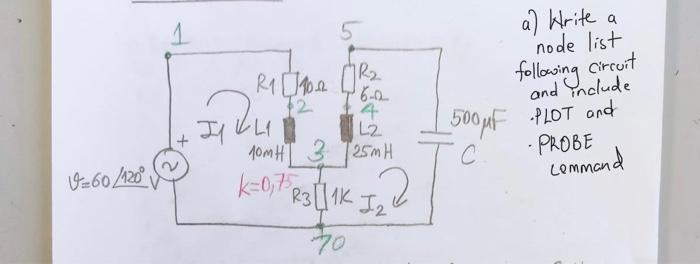 1
5
a) Write a
node list
following circuit
and include
.PLOT and
.PROBE
command
R1 10Ω
R2
6Ω
2
4
I1
L1
10mH
L2
25mH
3
500μF
C
+
V=60/120° V
k=0,75
R3 1K
I2
0